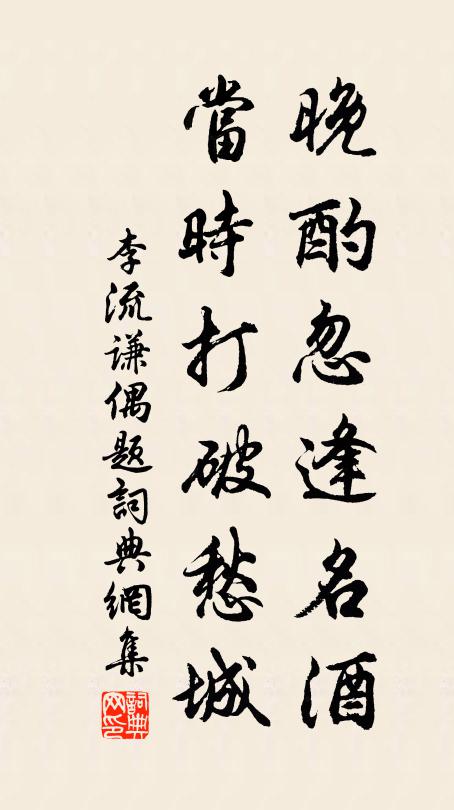 晚酌忽逢名酒
當時打破愁城
李流谦偶题詞典網集
詞典
网印